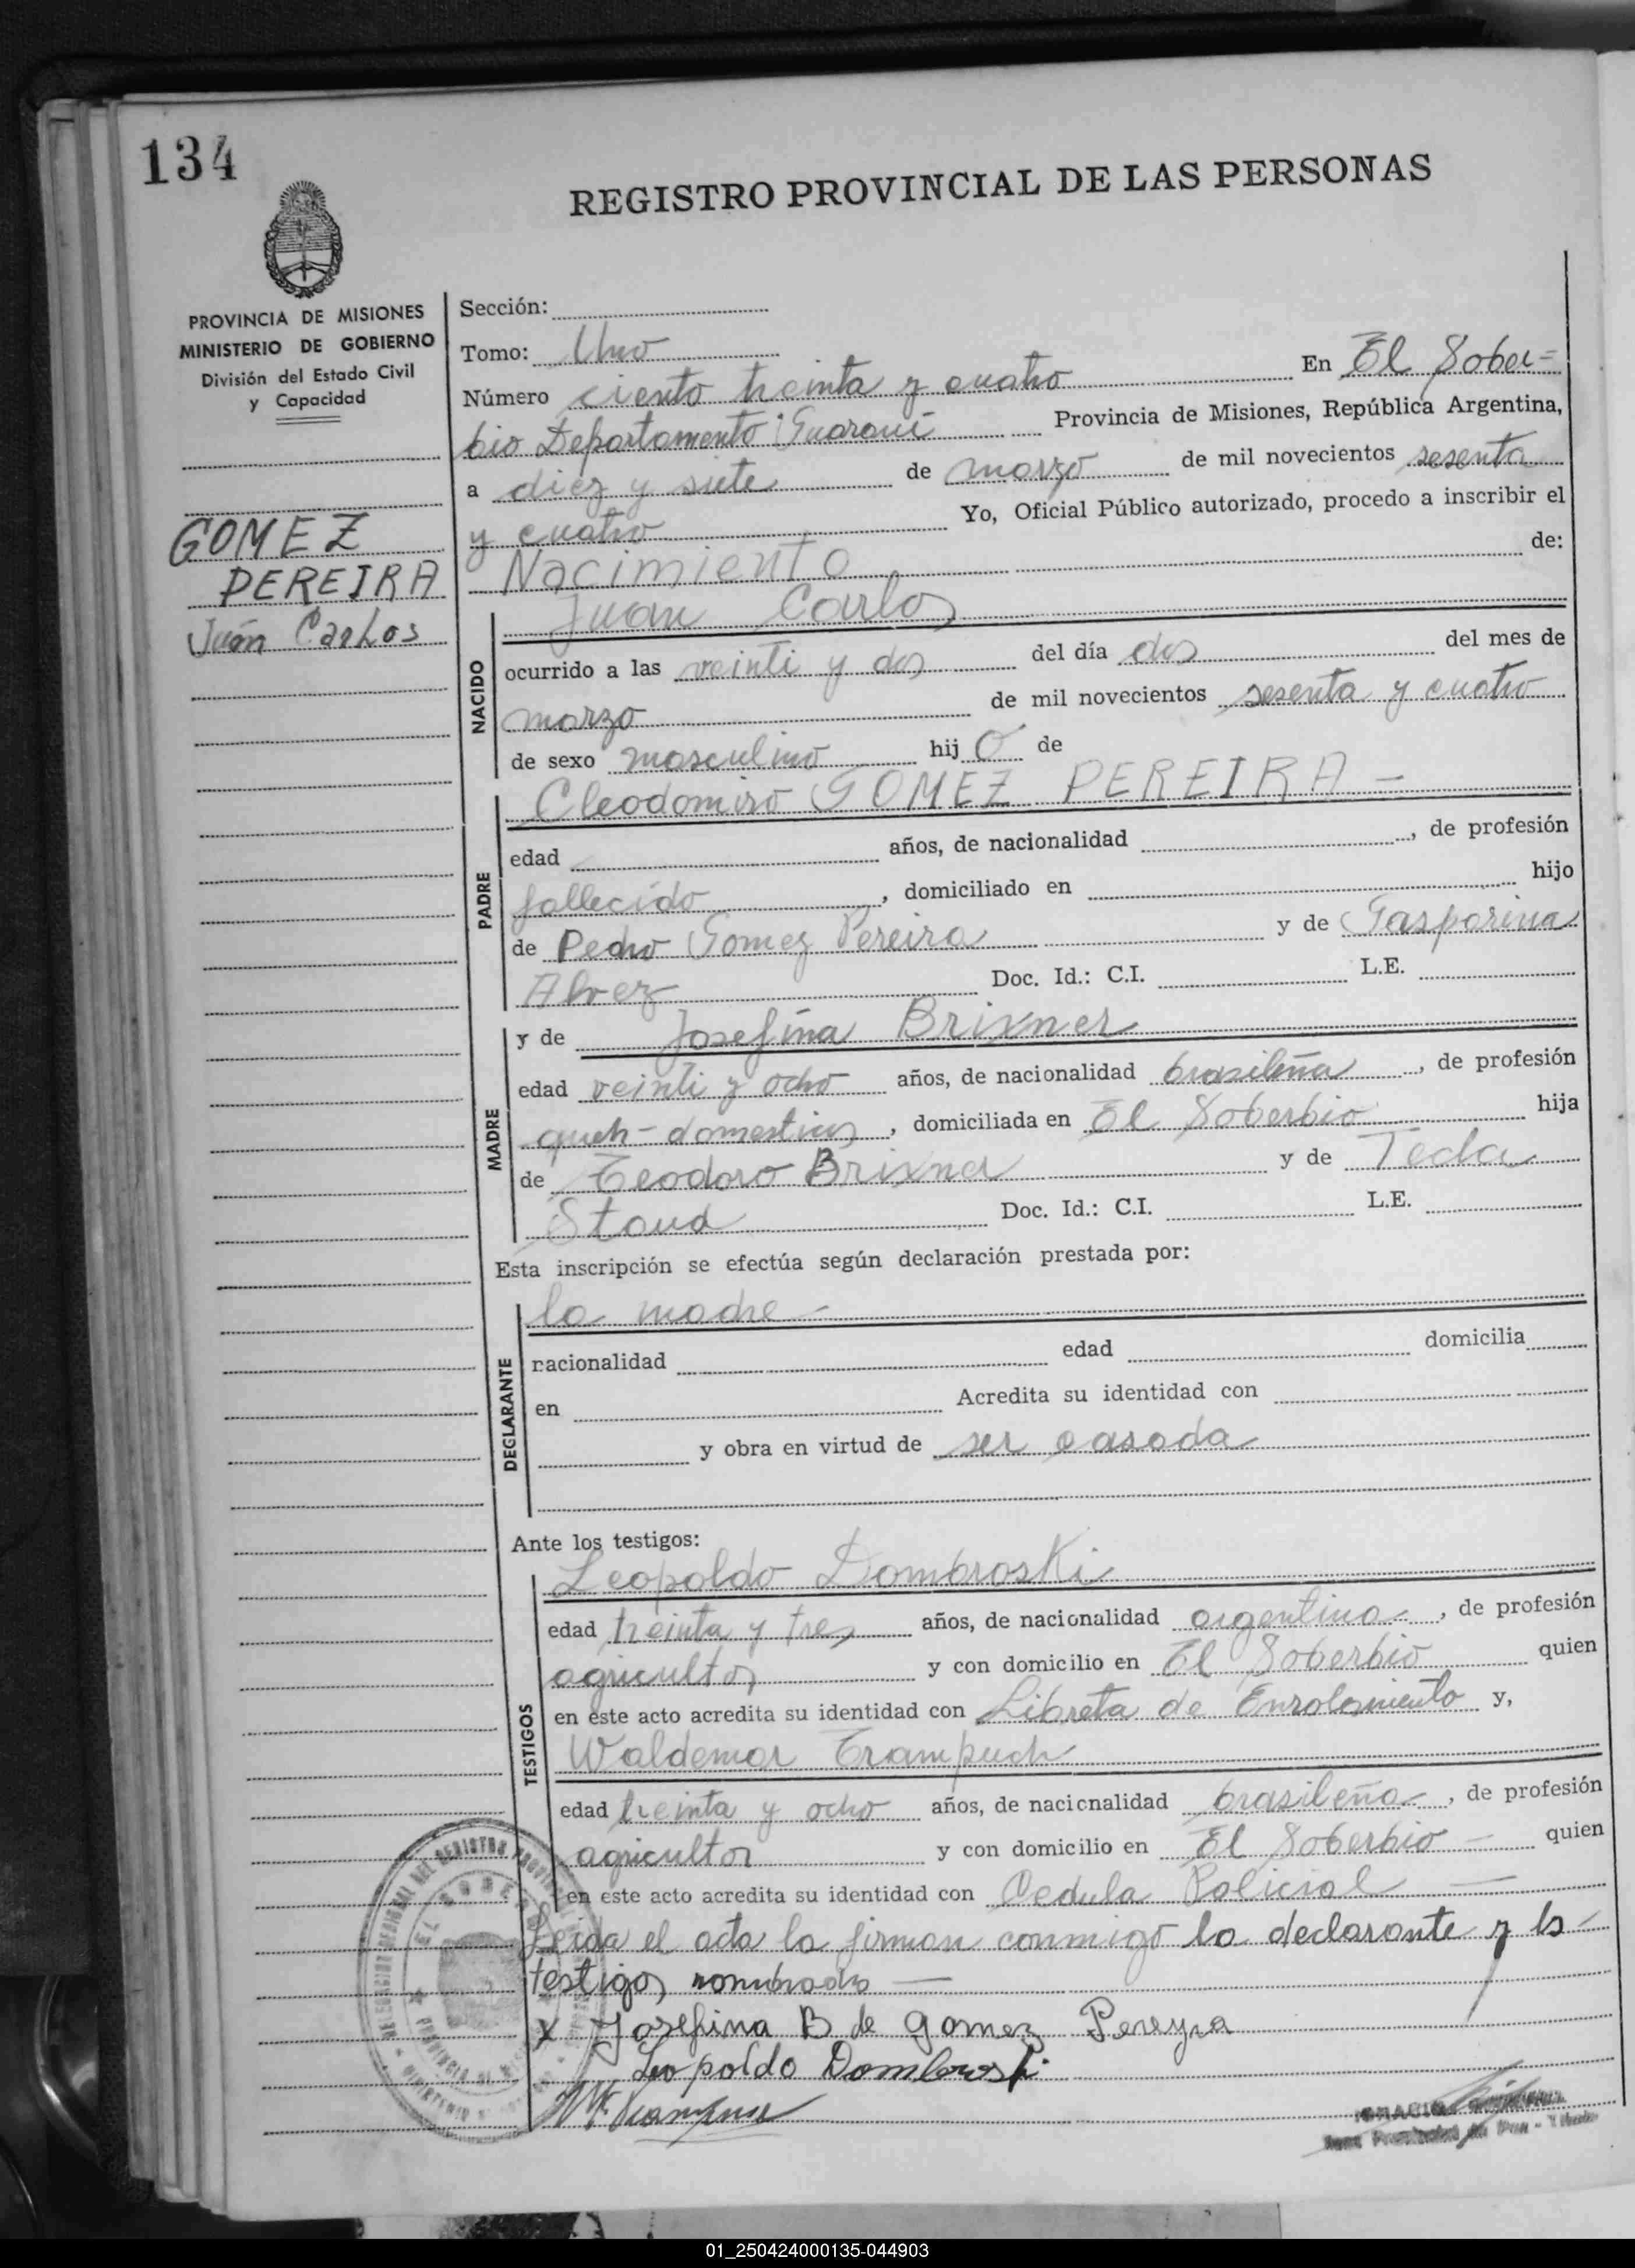 134
REGISTRO PROVINCIAL DE LAS PERSONAS
PROVINCIA DE MISIONES
MINISTERIO DE GOBIERNO
División del Estado Civil
y Capacidad
GOMEZ
PEREIRA
Juán Carlos
Sección:
Tomo: Uno
Número ciento treinta y cuatro En El Sober=
bio Departamento Guaraní Provincia de Misiones, República Argentina,
a diez y siete de marzo de mil novecientos sesenta
y cuatro Yo, Oficial Público autorizado, procedo a inscribir el
Nacimiento de:
NACIDO
Juan Carlos
ocurrido a las veinti y dos del día dos del mes de
marzo de mil novecientos sesenta y cuatro
de sexo masculino hij o de
PADRE
Cleodomiro GOMEZ PEREIRA =
edad años, de nacionalidad , de profesión
fallecido , domiciliado en hijo
de Pedro Gomez Pereira y de Gasparina
Alvez Doc. Id.: C.I. L.E.
MADRE
y de Josefina Brixner
edad veinti y ocho años, de nacionalidad brasileña , de profesión
queh-domesticos , domiciliada en El Soberbio hija
de Teodoro Brixner y de Tecla
Staud Doc. Id.: C.I. L.E.
Esta inscripción se efectúa según declaración prestada por:
DECLARANTE
la madre -
nacionalidad edad domicilia
en Acredita su identidad con
y obra en virtud de ser casada
Ante los testigos:
TESTIGOS
Leopoldo Dombroski
edad treinta y tres años, de nacionalidad argentina , de profesión
agricultor y con domicilio en El Soberbio quien
en este acto acredita su identidad con Libreta de Enrolamiento y,
Waldemar Trampuch
edad treinta y ocho años, de nacionalidad brasileña , de profesión
agricultor y con domicilio en El Soberbio - quien
en este acto acredita su identidad con Cedula Policial —
Leida el acta la firman conmigo la declarante y ls -
testigos nombrados —
x Josefina B de gomez Pereyra
Leopoldo Dombroski
IGNACIO
01_250424000135-044903